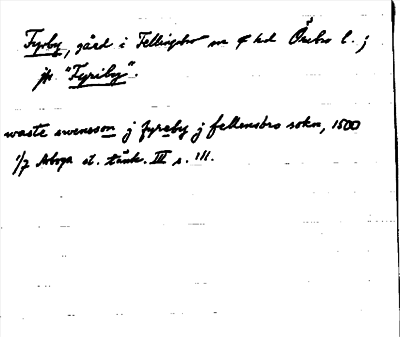 Fyrby, gård i Fellingsbro sn o hd Örebro l. ;
jfr "Fyriby".
waste swensson j fyreby j fellensbro sokn, 1500
1/7 Arboga st. tänk. III s. 111.